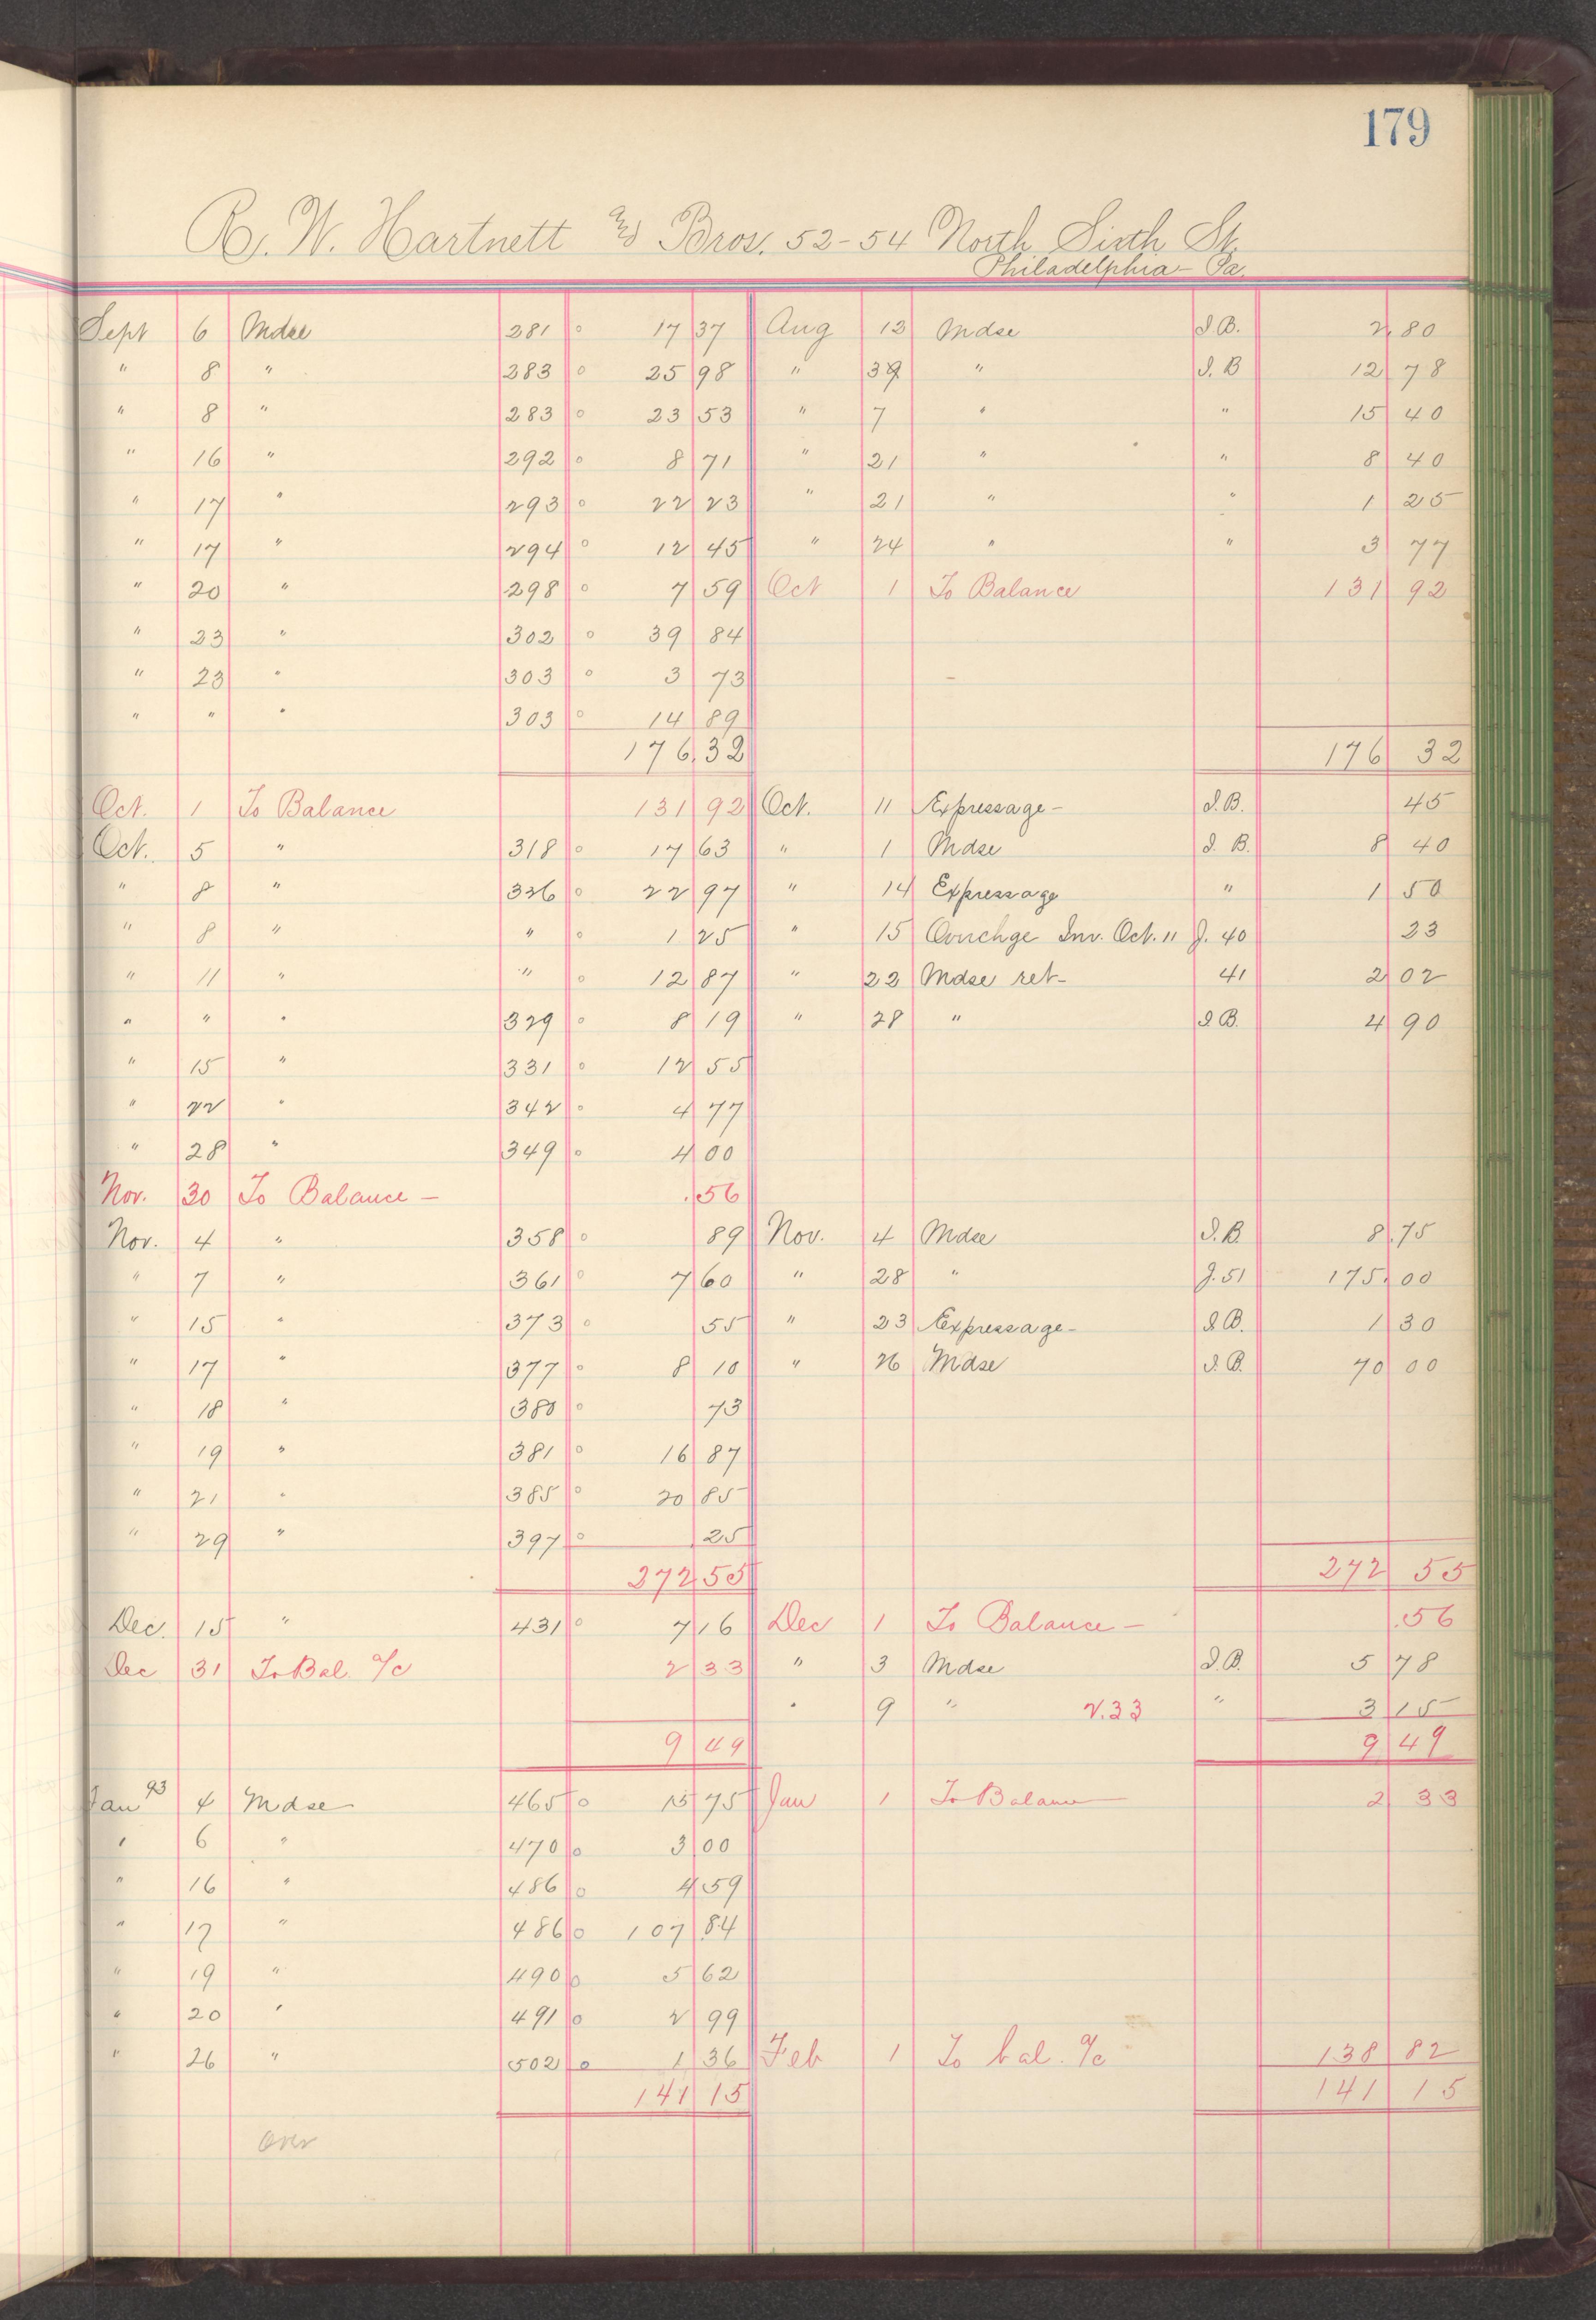 179
R. W. Hartnett and Bros. 52-54 North Sixth St.
Philadelphia - Pa.
Sept 6 Mdse 281 o 17 37 Aug 13 Mdse I.B. 2.80
" 8 " 283 o 25 98 " 39 " I.B 12 78
" 8 " 283 o 23 53 " 7 " " 15 40
" 16 " 292 o 8 71 " 21 " " 8 40
" 17 " 293 o 22 23 " 21 " " 1 25
" 17 " 294 o 12 45 " 24 " " 3 77
" 20 " 298 o 7 59 Oct 1 To Balance 131 92
" 23 " 302 o 39 84
" 23 " 303 o 3 73
" " " 303 o 14 89
176.32 176 32
Oct. 1 To Balance 131 92 Oct. 11 Expressage - I.B. 45
Oct. 5 " 318 o 17 63 " 1 Mdse I. B. 8 40
" 8 " 326 o 22 97 " 14 Expressage " 1 50
" 8 " " o 1 25 " 15 Ovrchge Inv. Oct. 11 J. 40 23
" 11 " " o 12 87 " 22 Mdse ret- 41 2 02
" " " 329 o 8 19 " 28 " I B. 4 90
" 15 " 331 o 12 55
" 22 " 342 o 4 77
" 28 " 349 o 4 00
Nov. 30 To Balance - .56
Nov. 4 " 358 o 89 Nov. 4 Mdse I.B. 8.75
" 7 " 361 o 7 60 " 28 " J. 51 175.00
" 15 " 373 o 55 " 23 Expressage - I B. 1 30
" 17 " 377 o 8 10 " 26 Mdse I. B. 70 00
" 18 " 380 o 73
" 19 " 381 o 16 87
" 21 " 385 o 20 85
" 29 " 397 o 25
272 55 272 55
Dec. 15 " 431 o 7 16 Dec 1 To Balance - .56
Dec 31 To Bal. a/c 2 33 " 3 Mdse I.B. 5 78
" 9 " 2.33 " 3 15
9 49 9 49
Jan 93 4 Mdse 465 o 15 75 Jan 1 To Balance 2 33
" 6 " 470 o 3 00
" 16 " 486 o 4 59
" 17 " 486 o 107 84
" 19 " 490 o 5 62
" 20 " 491 o 2 99
" 26 " 502 o 1 36 Feb 1 To bal. a/c 138 82
141 15 141 15
over